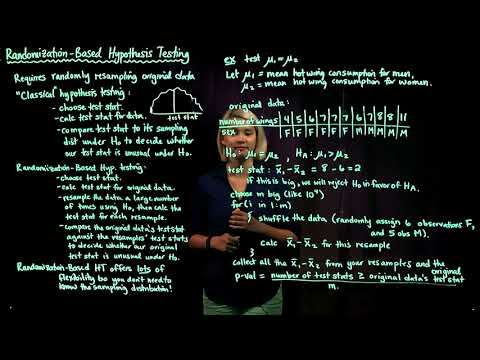 Randomization-Based Hypothesis Testing
Requires randomly resampling original data
"Classical hypothesis testing:
- choose test stat.
- calc test stat for data.
- compare test stat to its sampling
dist under Ho to decide whether
our test stat is unusual under Ho.
test stat
Randomization-Based Hyp. testing:
- choose test stat.
- calc test stat for original data.
- resample the data a large number
of times using Ho, then calc the
test stat for each resample.
- compare the original data's test stat
against the resamples' test stats
to decide whether our original
test stat is unusual under Ho.
Randomization-Based HT offers lots of
flexibility bc you don't need to
know the sampling distribution!
ex test μ₁ = μ₂
Let μ₁ = mean hot wing consumption for men,
μ₂ = mean hot wing consumption for women.
original data:
number of wings 4 5 6 7 7 7 6 7 8 8 11
sex F F F F F F M M M M M
Ho: μ₁ = μ₂ , HA: μ₁ > μ₂
test stat: x̄₁ - x̄₂ = 8 - 6 = 2
If this is big, we will reject Ho in favor of HA.
choose m big (like 10⁴)
for (i in 1:m)
{ shuffle the data (randomly assign 6 observations F,
and 5 obs M).
calc x̄₁ - x̄₂ for this resample
}
collect all the x̄₁ - x̄₂ from your resamples and the original
p-val = number of test stats ≥ original data's test stat
m.